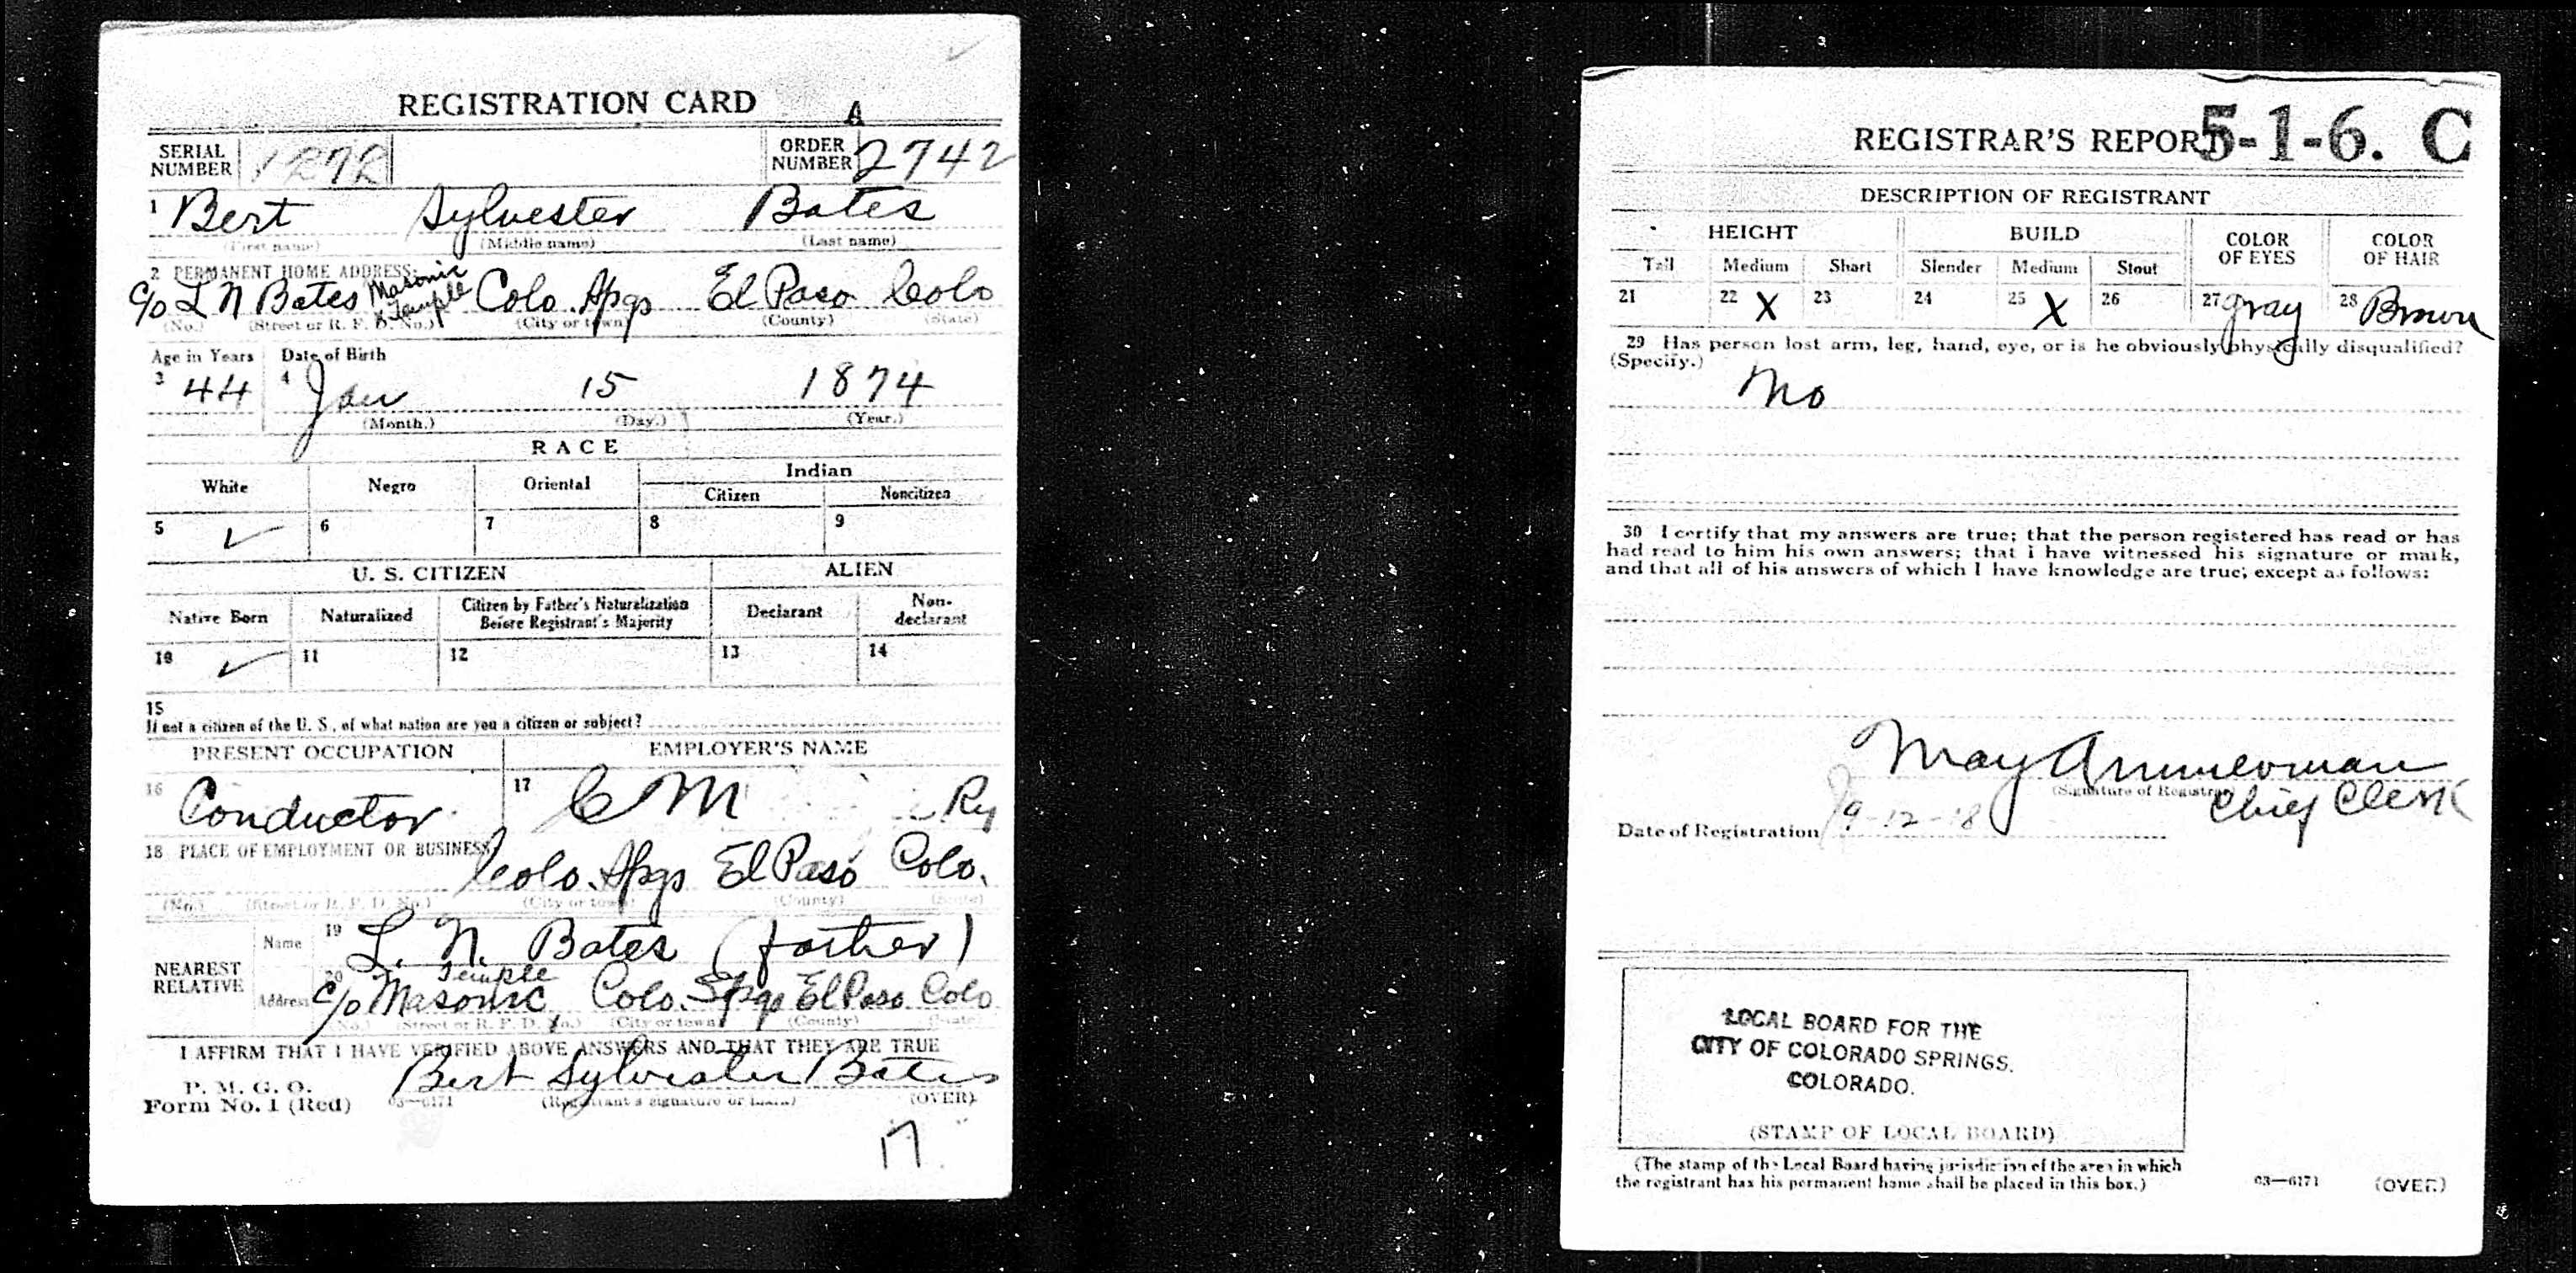 REGISTRATION CARD
SERIAL NUMBER 1272 ORDER NUMBER A 2742
1 Bert Sylvester Bates
(First name) (Middle name) (Last name)
2 PERMANENT HOME ADDRESS:
c/o L N Bates Masonic Temple Colo. Spgs El Paso Colo
(No.) (Street or R. F. D. No.) (City or town) (County) (State)
Age in Years Date of Birth
3 44 4 Jan 15 1874
(Month.) (Day.) (Year.)
RACE
White Negro Oriental Indian
Citizen Noncitizen
5 ✓ 6 7 8 9
U. S. CITIZEN ALIEN
Native Born Naturalized Citizen by Father's Naturalization Before Registrant's Majority Declarant Non-declarant
10 ✓ 11 12 13 14
15
If not a citizen of the U. S., of what nation are you a citizen or subject?
PRESENT OCCUPATION EMPLOYER'S NAME
16 Conductor 17 C M Ry
18 PLACE OF EMPLOYMENT OR BUSINESS
Colo. Spgs El Paso Colo.
(No.) (Street or R. F. D. No.) (City or town) (County) (State)
NEAREST RELATIVE
Name 19 L. N. Bates (father)
Address 20 c/o Masonic Temple, Colo. Spgs El Paso Colo
(No.) (Street or R. F. D. No.) (City or town) (County) (State)
I AFFIRM THAT I HAVE VERIFIED ABOVE ANSWERS AND THAT THEY ARE TRUE
P. M. G. O.
Form No. 1 (Red) 03—6171 Bert Sylvester Bates
(Registrant's signature or mark) (OVER)
17
REGISTRAR'S REPORT 5-1-6. C
DESCRIPTION OF REGISTRANT
HEIGHT BUILD COLOR OF EYES COLOR OF HAIR
Tall Medium Short Slender Medium Stout
21 22 X 23 24 25 X 26 27 gray 28 Brown
29 Has person lost arm, leg, hand, eye, or is he obviously physically disqualified?
(Specify.)
No
30 I certify that my answers are true; that the person registered has read or has
had read to him his own answers; that I have witnessed his signature or mark,
and that all of his answers of which I have knowledge are true, except as follows:
May
(Signature of Registrar)
Chief Clerk
Date of Registration 9-12-18
LOCAL BOARD FOR THE
CITY OF COLORADO SPRINGS,
COLORADO.
(STAMP OF LOCAL BOARD)
(The stamp of the Local Board having jurisdiction of the area in which
the registrant has his permanent home shall be placed in this box.)
03—6171 (OVER)